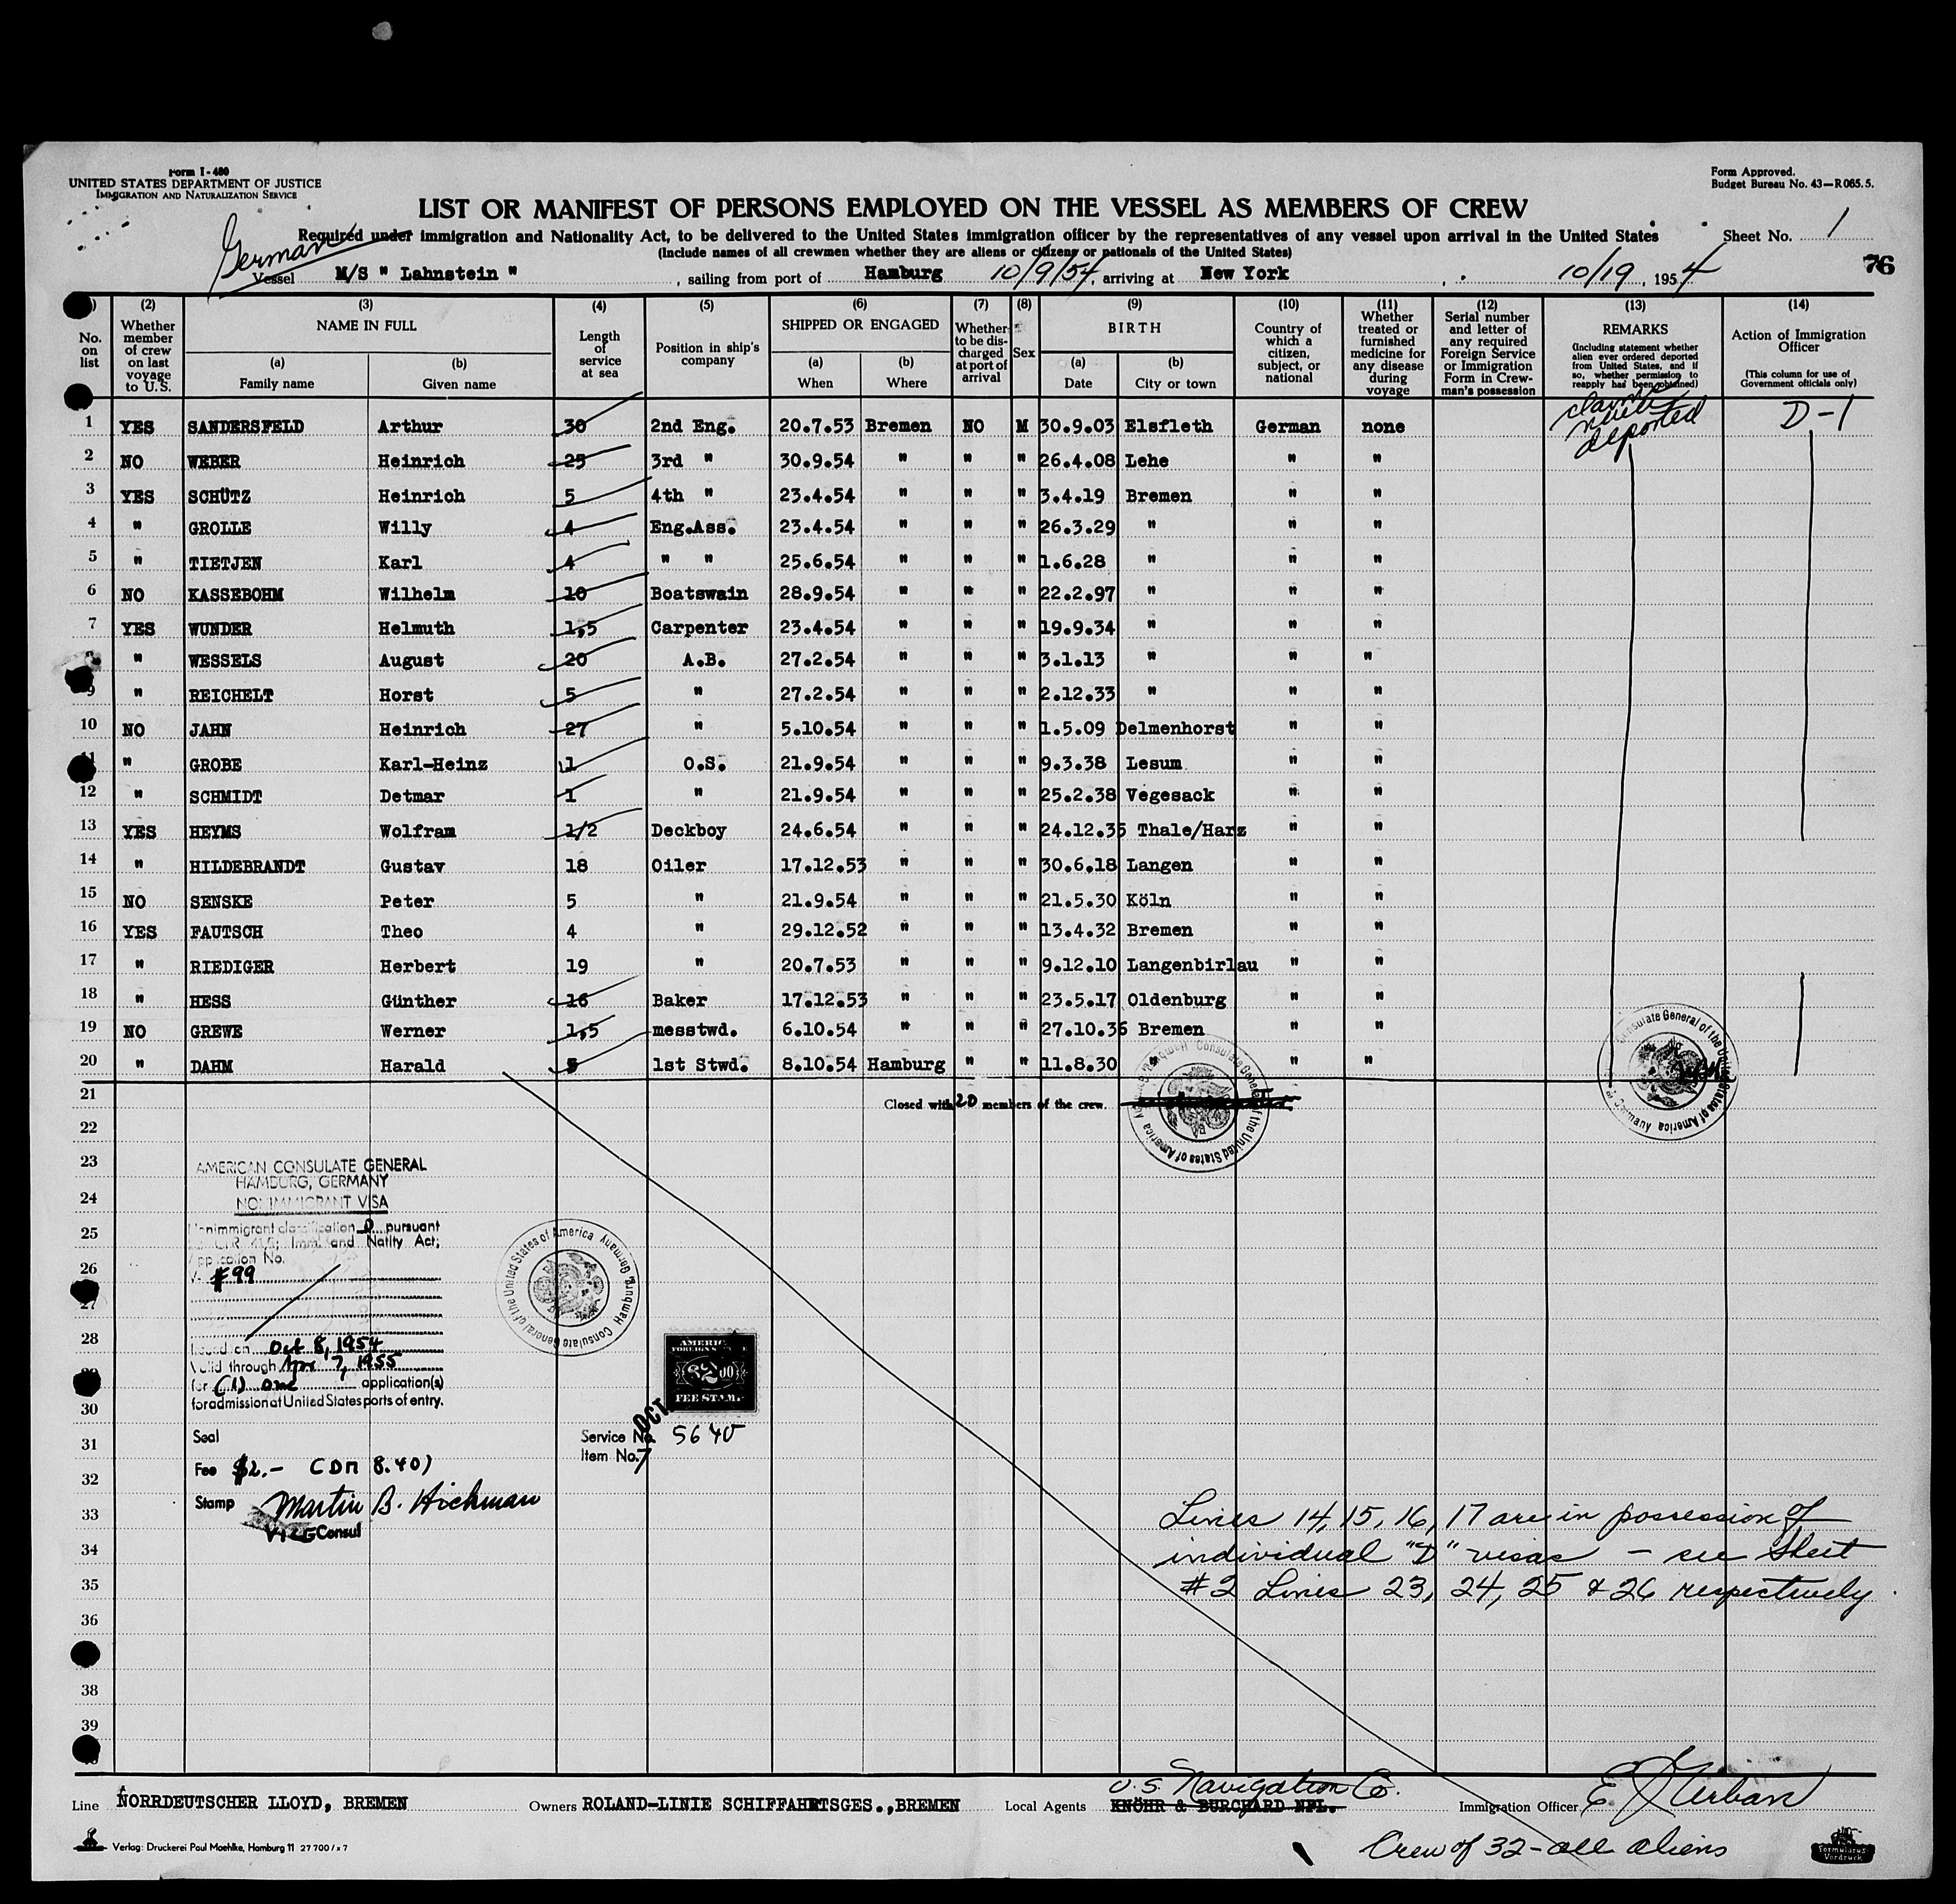 Form I-480
UNITED STATES DEPARTMENT OF JUSTICE
IMMIGRATION AND NATURALIZATION SERVICE
Form Approved.
Budget Bureau No. 43—R065.5.
LIST OR MANIFEST OF PERSONS EMPLOYED ON THE VESSEL AS MEMBERS OF CREW
Required under immigration and Nationality Act, to be delivered to the United States immigration officer by the representatives of any vessel upon arrival in the United States
Sheet No. 1
(Include names of all crewmen whether they are aliens or citizens or nationals of the United States)
German
Vessel M/S " Lahnstein ", sailing from port of Hamburg 10/9/54, arriving at New York, 10/19, 1954
76
(2) (3) (4) (5) (6) (7) (8) (9) (10) (11) (12) (13) (14)
No. on list
Whether member of crew on last voyage to U.S.
NAME IN FULL
(a) Family name
(b) Given name
Length of service at sea
Position in ship's company
SHIPPED OR ENGAGED
(a) When
(b) Where
Whether to be discharged at port of arrival
Sex
BIRTH
(a) Date
(b) City or town
Country of which a citizen, subject, or national
Whether treated or furnished medicine for any disease during voyage
Serial number and letter of any required Foreign Service or Immigration Form in Crewman's possession
REMARKS
(Including statement whether alien ever ordered deported from United States, and if so, whether permission to reapply has been obtained)
Action of Immigration Officer
(This column for use of Government officials only)
1 YES SANDERSFELD Arthur 30 2nd Eng. 20.7.53 Bremen NO M 30.9.03 Elsfleth German none claims never deported D-1
2 NO WEBER Heinrich 25 3rd " 30.9.54 " " " 26.4.08 Lehe " "
3 YES SCHÜTZ Heinrich 5 4th " 23.4.54 " " " 3.4.19 Bremen " "
4 " GROLLE Willy 4 Eng.Ass. 23.4.54 " " " 26.3.29 " " "
5 " TIETJEN Karl 4 " " 25.6.54 " " " 1.6.28 " " "
6 NO KASSEBOHM Wilhelm 10 Boatswain 28.9.54 " " " 22.2.97 " " "
7 YES WUNDER Helmuth 1,5 Carpenter 23.4.54 " " " 19.9.34 " " "
" WESSELS August 20 A.B. 27.2.54 " " " 3.1.13 " " "
9 " REICHELT Horst 5 " 27.2.54 " " " 2.12.33 " " "
10 NO JAHN Heinrich 27 " 5.10.54 " " " 1.5.09 Delmenhorst " "
11 " GROBE Karl-Heinz 1 O.S. 21.9.54 " " " 9.3.38 Lesum " "
12 " SCHMIDT Detmar 1 " 21.9.54 " " " 25.2.38 Vegesack " "
13 YES HEYMS Wolfram 1/2 Deckboy 24.6.54 " " " 24.12.35 Thale/Harz " "
14 " HILDEBRANDT Gustav 18 Oiler 17.12.53 " " " 30.6.18 Langen " "
15 NO SENSKE Peter 5 " 21.9.54 " " " 21.5.30 Köln " "
16 YES FAUTSCH Theo 4 " 29.12.52 " " " 13.4.32 Bremen " "
17 " RIEDIGER Herbert 19 " 20.7.53 " " " 9.12.10 Langenbirlau " "
18 " HESS Günther 16 Baker 17.12.53 " " " 23.5.17 Oldenburg " "
19 NO GREWE Werner 1,5 messtwd. 6.10.54 " " " 27.10.36 Bremen " "
20 " DAHM Harald 5 1st Stwd. 8.10.54 Hamburg " " 11.8.30 " " "
21
Closed with 20 members of the crew.
22
23
24
25
26
27
28
29
30
31
32
33
34
35
36
38
39
AMERICAN CONSULATE GENERAL
HAMBURG, GERMANY
NONIMMIGRANT VISA
Nonimmigrant classification D pursuant
Immi. and Natlty Act;
Application No.
V. #99
Issued on Oct 8, 1954
Valid through Apr 7, 1955
for (1) one application(s)
for admission at United States ports of entry.
Seal
Fee $2.- (DM 8.40)
Stamp Martin B. Hickman
Vice Consul
Consulate General of the United States of America Hamburg, Germany
AMERICAN
FOREIGN SERVICE
$2.00
FEE STAMP
OCT
Service No. 5640
Item No. 7
Lines 14, 15, 16, 17 are in possession of
individual "D" visas — see Sheet
#2 Lines 23, 24, 25 & 26 respectively
Line NORRDEUTSCHER LLOYD, BREMEN
Owners ROLAND-LINIE SCHIFFAHRTSGES., BREMEN
Local Agents U.S. Navigation Co.
KNÖHR & BURCHARD NFL.
Immigration Officer E J Urban
Crew of 32 - all aliens
Verlag: Druckerei Paul Moehlke, Hamburg 11 27 700/x7
Formulare
Vordruck